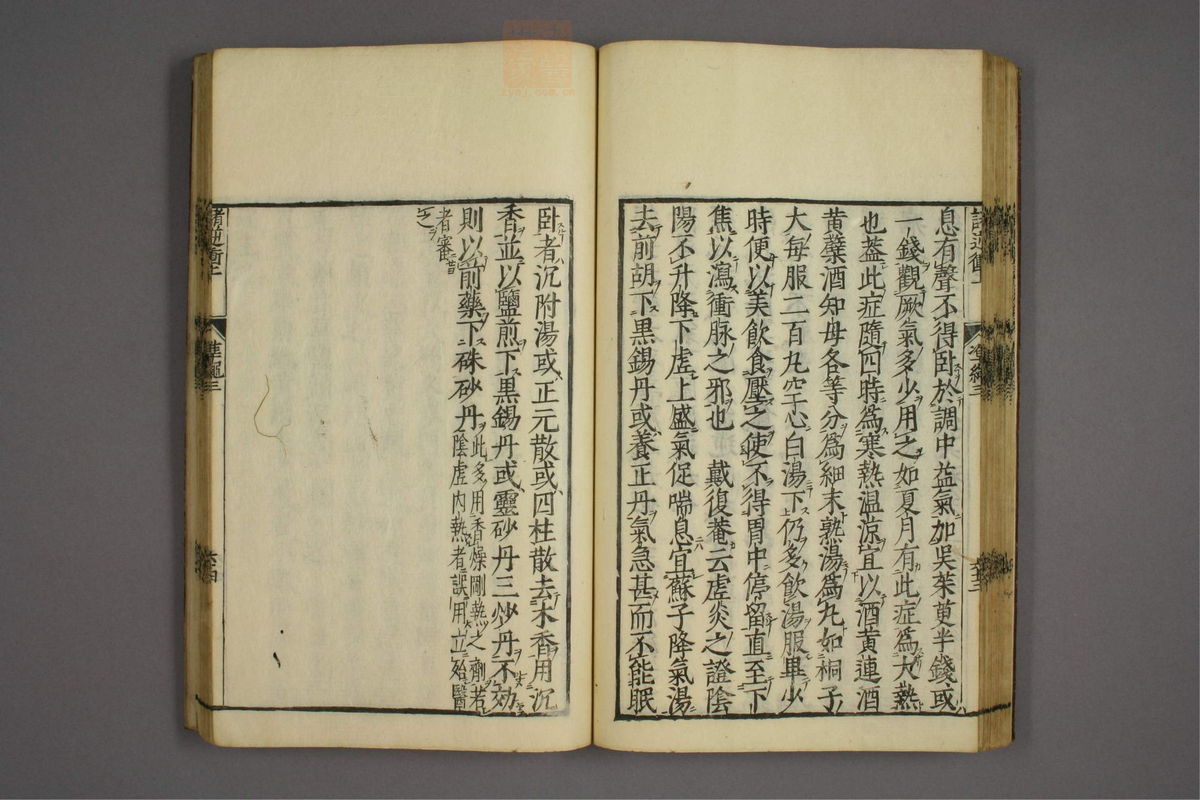 息有聲不得卧於調中益氣加吳茱萸半錢或
一錢觀厥氣多少用之如夏月有此症爲大熱
也葢此症隨四時爲寒熱温涼宜以酒黄連酒
黄蘗酒知母各等分爲細末熟湯爲丸如桐子
大每服二百丸空心白湯下仍多飲湯服畢少
時便以美飲食壓之使不得胃中停留直至下
焦以瀉衝脉之邪也　戴復菴云虚炎之證陰
陽不升降下虚上盛氣促喘息宜蘇子降氣湯
去前胡下黒錫丹或養正丹氣急甚而不能眠
卧者沉附湯或正元散或四柱散去木香用沉
香並以鹽煎下黒錫丹或靈砂丹三炒丹不効
則以前藥下硃砂丹此多用香燥剛熱之劑若
陰虚内熱者誤用立殆醫
者審
之
準繩三
六十四
準繩三